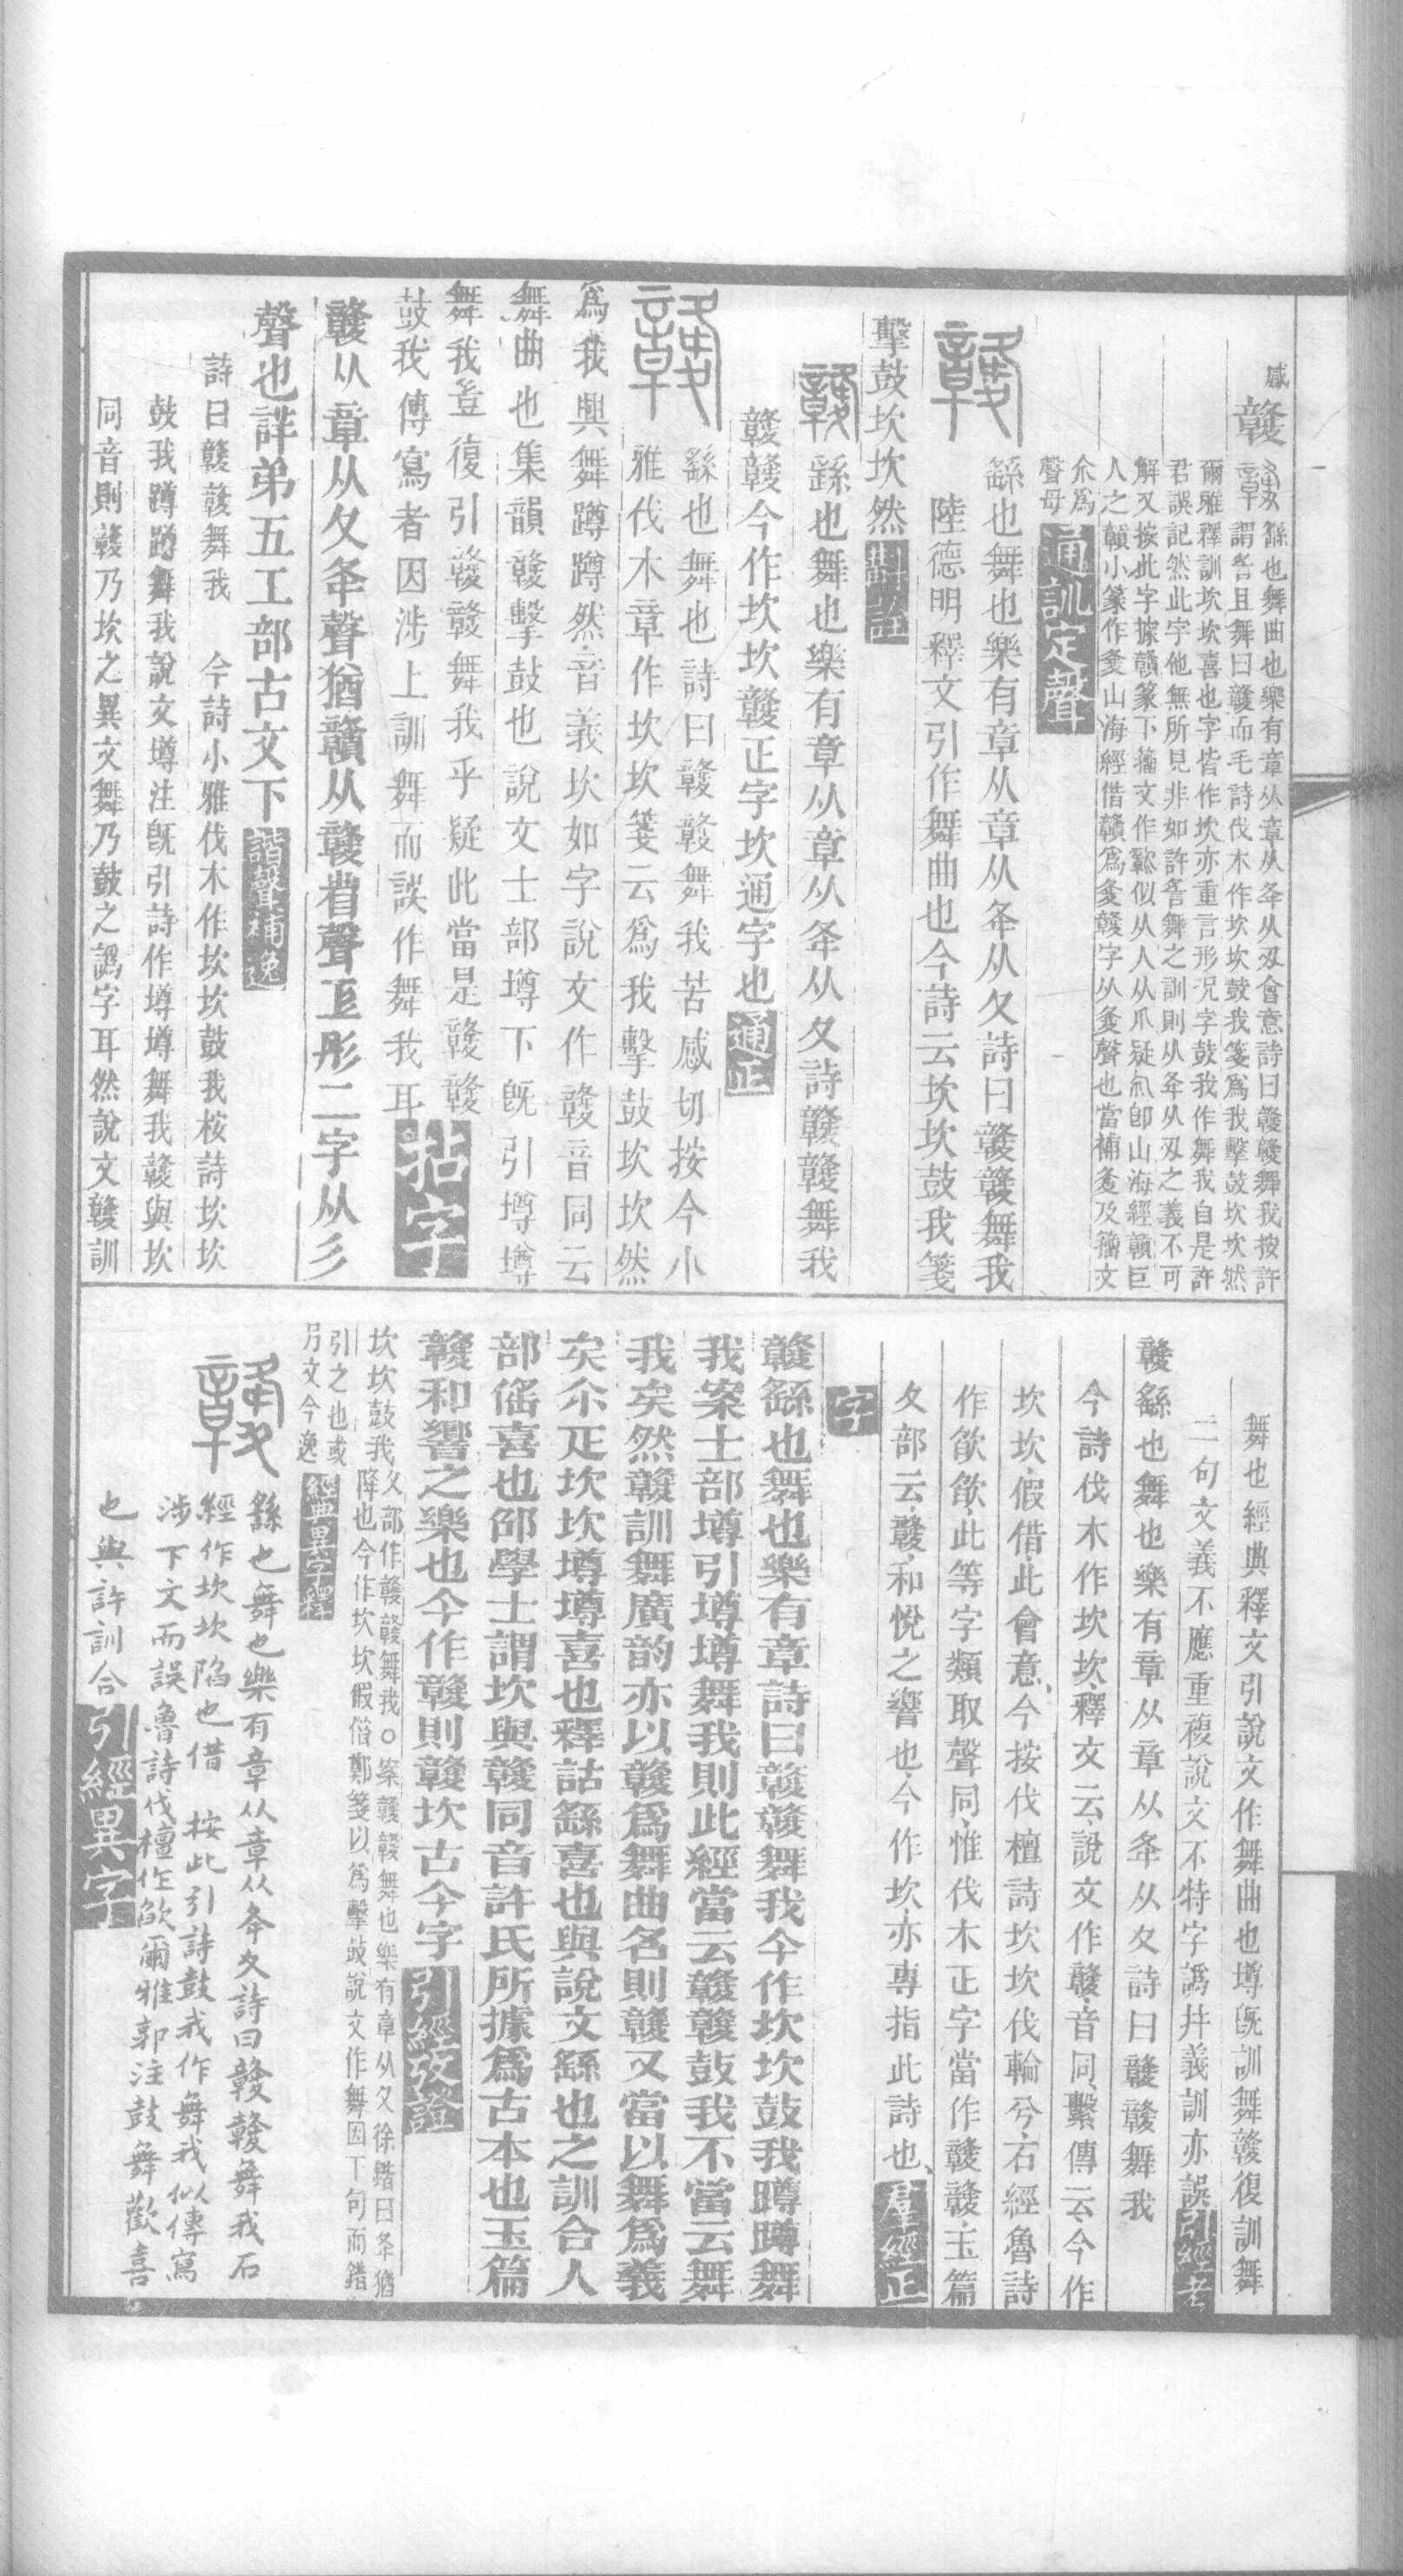 感
竷
䌛也舞曲也樂有章从章从夅从夊會意詩曰竷竷舞我按許
謂䚻且舞曰竷而毛詩伐木作坎坎鼓我箋爲我擊鼓坎坎然
爾雅釋訓坎坎喜也字皆作坎亦重言形况字鼓我作舞我自是許
君誤記然此字他無所見非如許䚻舞之訓則从夅从夊之義不可
解又按此字據贛篆下籒文作 似从人从爪疑 卽山海經贛巨
人之贛小篆作 山海經借贛爲 竷字从 聲也當補 及籒文
尒爲
聲母
通訓定聲
䌛也舞也樂有章从章从夅从夊詩曰竷竷舞我
陸德明釋文引作舞曲也今詩云坎坎鼓我箋
擊鼓坎坎然
斠詮
䌛也舞也樂有章从章从夅从夊詩竷竷舞我
竷竷今作坎坎竷正字坎通字也
通正
䌛也舞也詩曰竷竷舞我苦感切按今小
雅伐木章作坎坎箋云爲我擊鼓坎坎然
爲我興舞蹲蹲然音義坎如字說文作竷音同云
舞曲也集韻竷擊鼓也說文士部墫下旣引墫墫
舞我豈復引竷竷舞我乎疑此當是竷竷
鼓我傳寫者因涉上訓舞而誤作舞我耳
拈字
竷从章从夊夅聲猶贛从竷省聲 彤二字从彡
聲也詳弟五工部古文下
諧聲補逸
詩曰竷竷舞我 今詩小雅伐木作坎坎鼓我桉詩坎坎
鼓我蹲蹲舞我說文墫注旣引詩作墫墫舞我竷與坎
同音則竷乃坎之異文舞乃鼓之譌字耳然說文竷訓
舞也經典釋文引說文作舞曲也墫旣訓舞竷復訓舞
二句文義不應重複說文不特字譌幷義訓亦誤
引經考
竷䌛也舞也樂有章从章从夅从夊詩曰竷竷舞我
今詩伐木作坎坎釋文云說文作竷音同繫傳云今作
坎坎假借此會意今按伐檀詩坎坎伐輪兮石經魯詩
作欿欿此等字類取聲同惟伐木正字當作竷竷玉篇
夊部云竷和悅之響也今作坎亦專指此詩也
羣經正
字
竷䌛也舞也樂有章詩曰竷竷舞我今作坎坎鼓我蹲蹲舞
我案士部墫引墫墫舞我則此經當云竷竷鼓我不當云舞
我矣然竷訓舞廣韵亦以竷爲舞曲名則竷又當以舞爲義
矣尒疋坎坎墫墫喜也釋詁䌛喜也與說文䌛也之訓合人
部傜喜也邵學士謂坎與竷同音許氏所據爲古本也玉篇
竷和響之樂也今作竷則竷坎古今字
引經攷證
坎坎鼓我
夊部作竷竷舞我○案竷竷舞也樂有章从夊徐鍇曰夅猶
降也今作坎坎假借鄭箋以爲擊鼓說文作舞因下句而錯
引之也或
另文今逸
經典異字釋
䌛也舞也樂有章从章从夅夊詩曰竷竷舞我石
經作坎坎陷也借 按此引詩鼓我作舞我似傳寫
涉下文而誤魯詩伐檀作欿爾雅郭注鼓舞歡喜
也與許訓合
引經異字